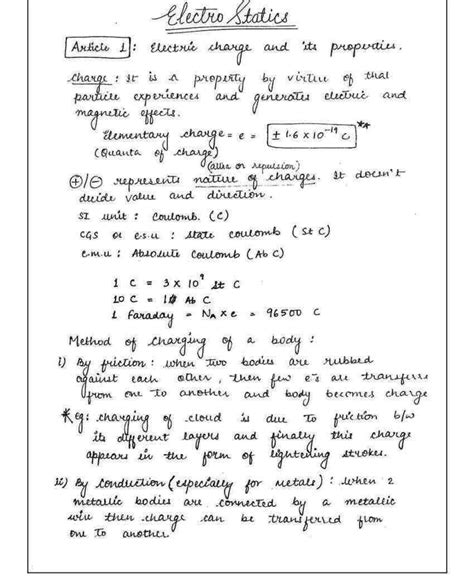 Electro Statics
Article 1 : Electric charge and its properties.
Charge : It is a property by virtue of that
particle experiences and generates electric and
magnetic effects.
Elementary charge = e = ± 1.6 x 10⁻¹⁹ C **
(Quanta of charge)
(attr or repulsion)
⊕/⊖ represents nature of charges. It doesn't
decide value and direction.
SI unit : Coulomb. (C)
CGS or e.s.u : state coulomb (St C)
e.m.u : Absolute Coulomb (Ab C)
1 C = 3 x 10⁹ St C
10 C = 1 Ab C
1 Faraday = NA x e = 96500 C
Method of Charging of a body :
i) By friction : when two bodies are rubbed
against each other, then few e⁻s are transferr
from one to another and body becomes charge
*eg: charging of cloud is due to friction b/w
its different layers and finally this charge
appears in the form of lightening strokes.
ii) By Conduction (especially for metals) : when 2
metallic bodies are connected by a metallic
wire then charge can be transferred from
one to another.